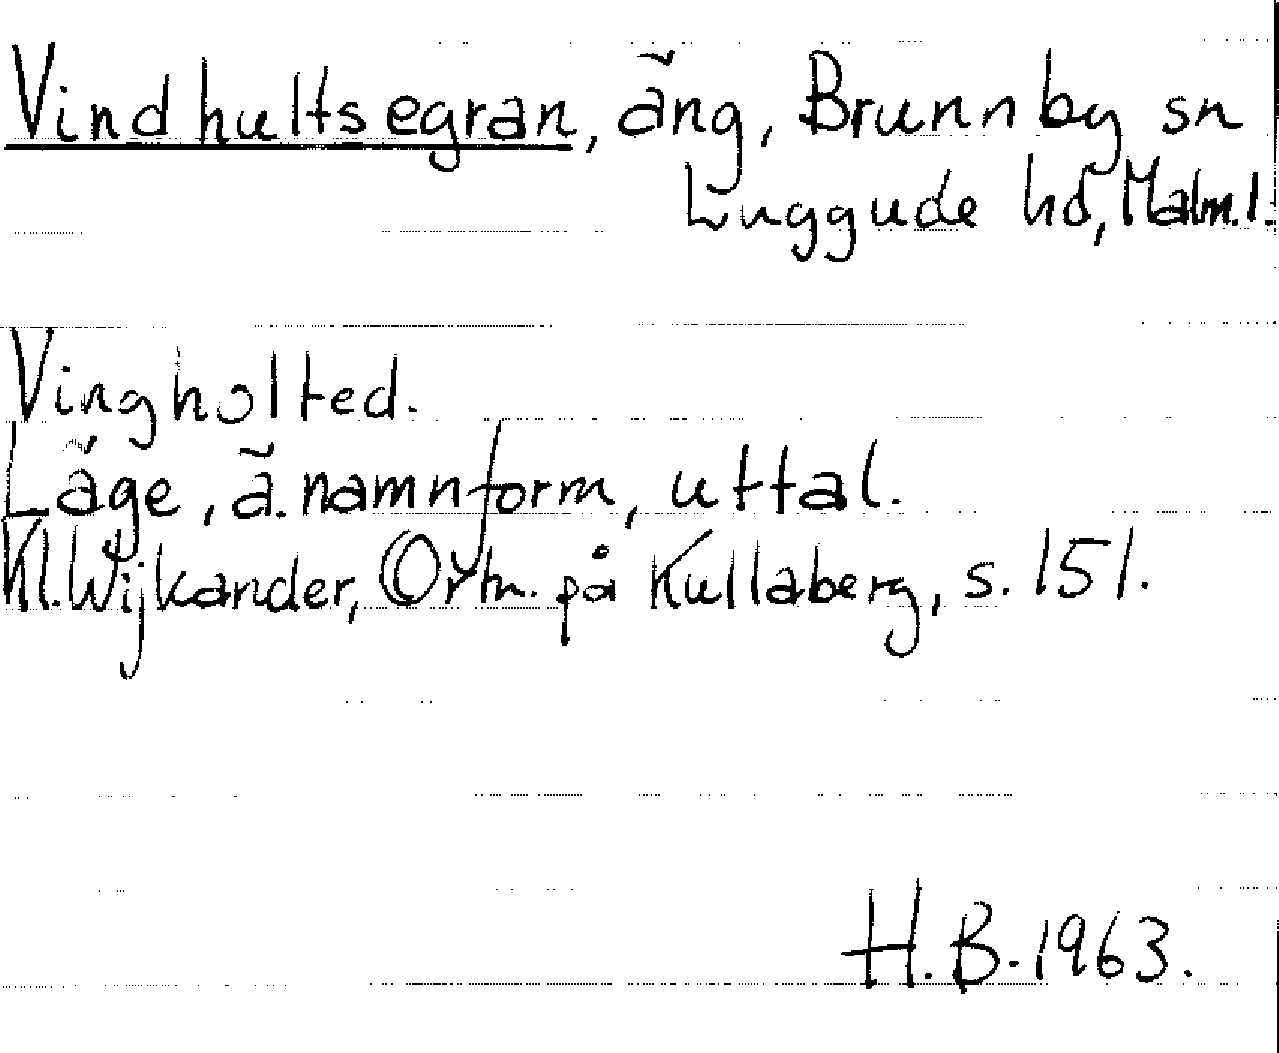 Vindhultsegran, äng, Brunnby sn
Luggude hd, Malm. l.
Vingholted.
Läge, ä. namnform, uttal.
Kl. Wijkander, Ortn. på Kullaberg, s. 151.
H. B. 1963.